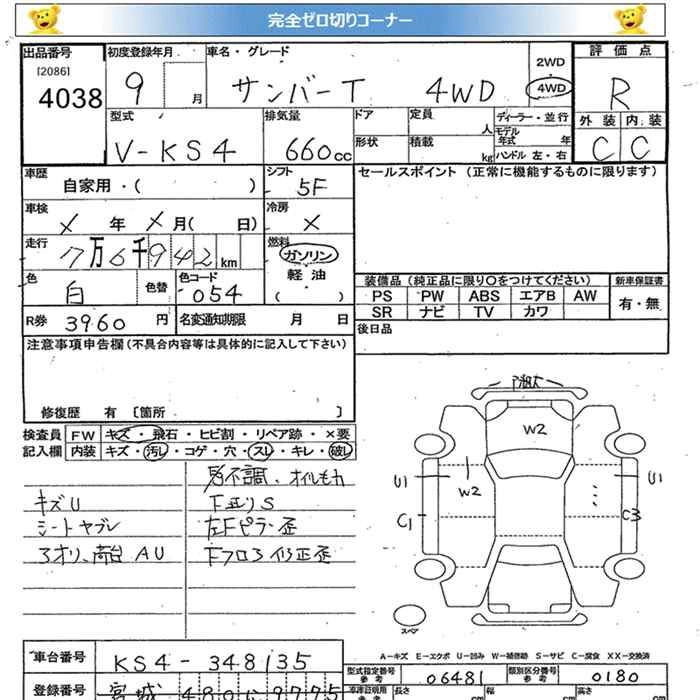 完全ゼロ切りコーナー
出品番号 初度登録年月 車名・グレード 評価点
[2086]
4038
9 月 サンバーT 4WD
2WD
4WD
R
型式 排気量 ドア 定員 ディーラー・並行 外装 内装
V-KS4 660cc 形状 積載 人 モデル年式 年
kg ハンドル 左・右
C C
車歴 シフト セールスポイント (正常に機能するものに限ります)
自家用・( ) 5F
車検 冷房
× 年 × 月( 日) ×
走行 燃料
7万6千942km ガソリン
軽油
( )
色 色替 色コード
白 054
装備品 (純正品に限り〇をつけてください) 新車保証書
PS PW ABS エアB AW 有・無
SR ナビ TV カワ
R券 3960円 名変通知期限 月 日
後日品
注意事項申告欄(不具合内容等は具体的に記入して下さい)
修復歴 有 〔箇所 〕
検査員 FW キズ・飛石・ヒビ割・リペア跡・×要
記入欄 内装 キズ・汚し・コゲ・穴・スレ・キレ・破し
不調、オイルもれ
キズU
シートヤブレ
左Fピラー歪
AU
W2
U1 W2 U1
C1 C3
スペア
A-キズ E-エクボ U-凹み W-補修跡 S-サビ C-腐食 XX-交換済
車台番号 KS4-348135
型式指定番号 参考 06481 類別区分番号 参考 0180
登録番号 宮城 480 い 9775
車庫証明用 参考 長さ cm 幅 cm 高さ cm